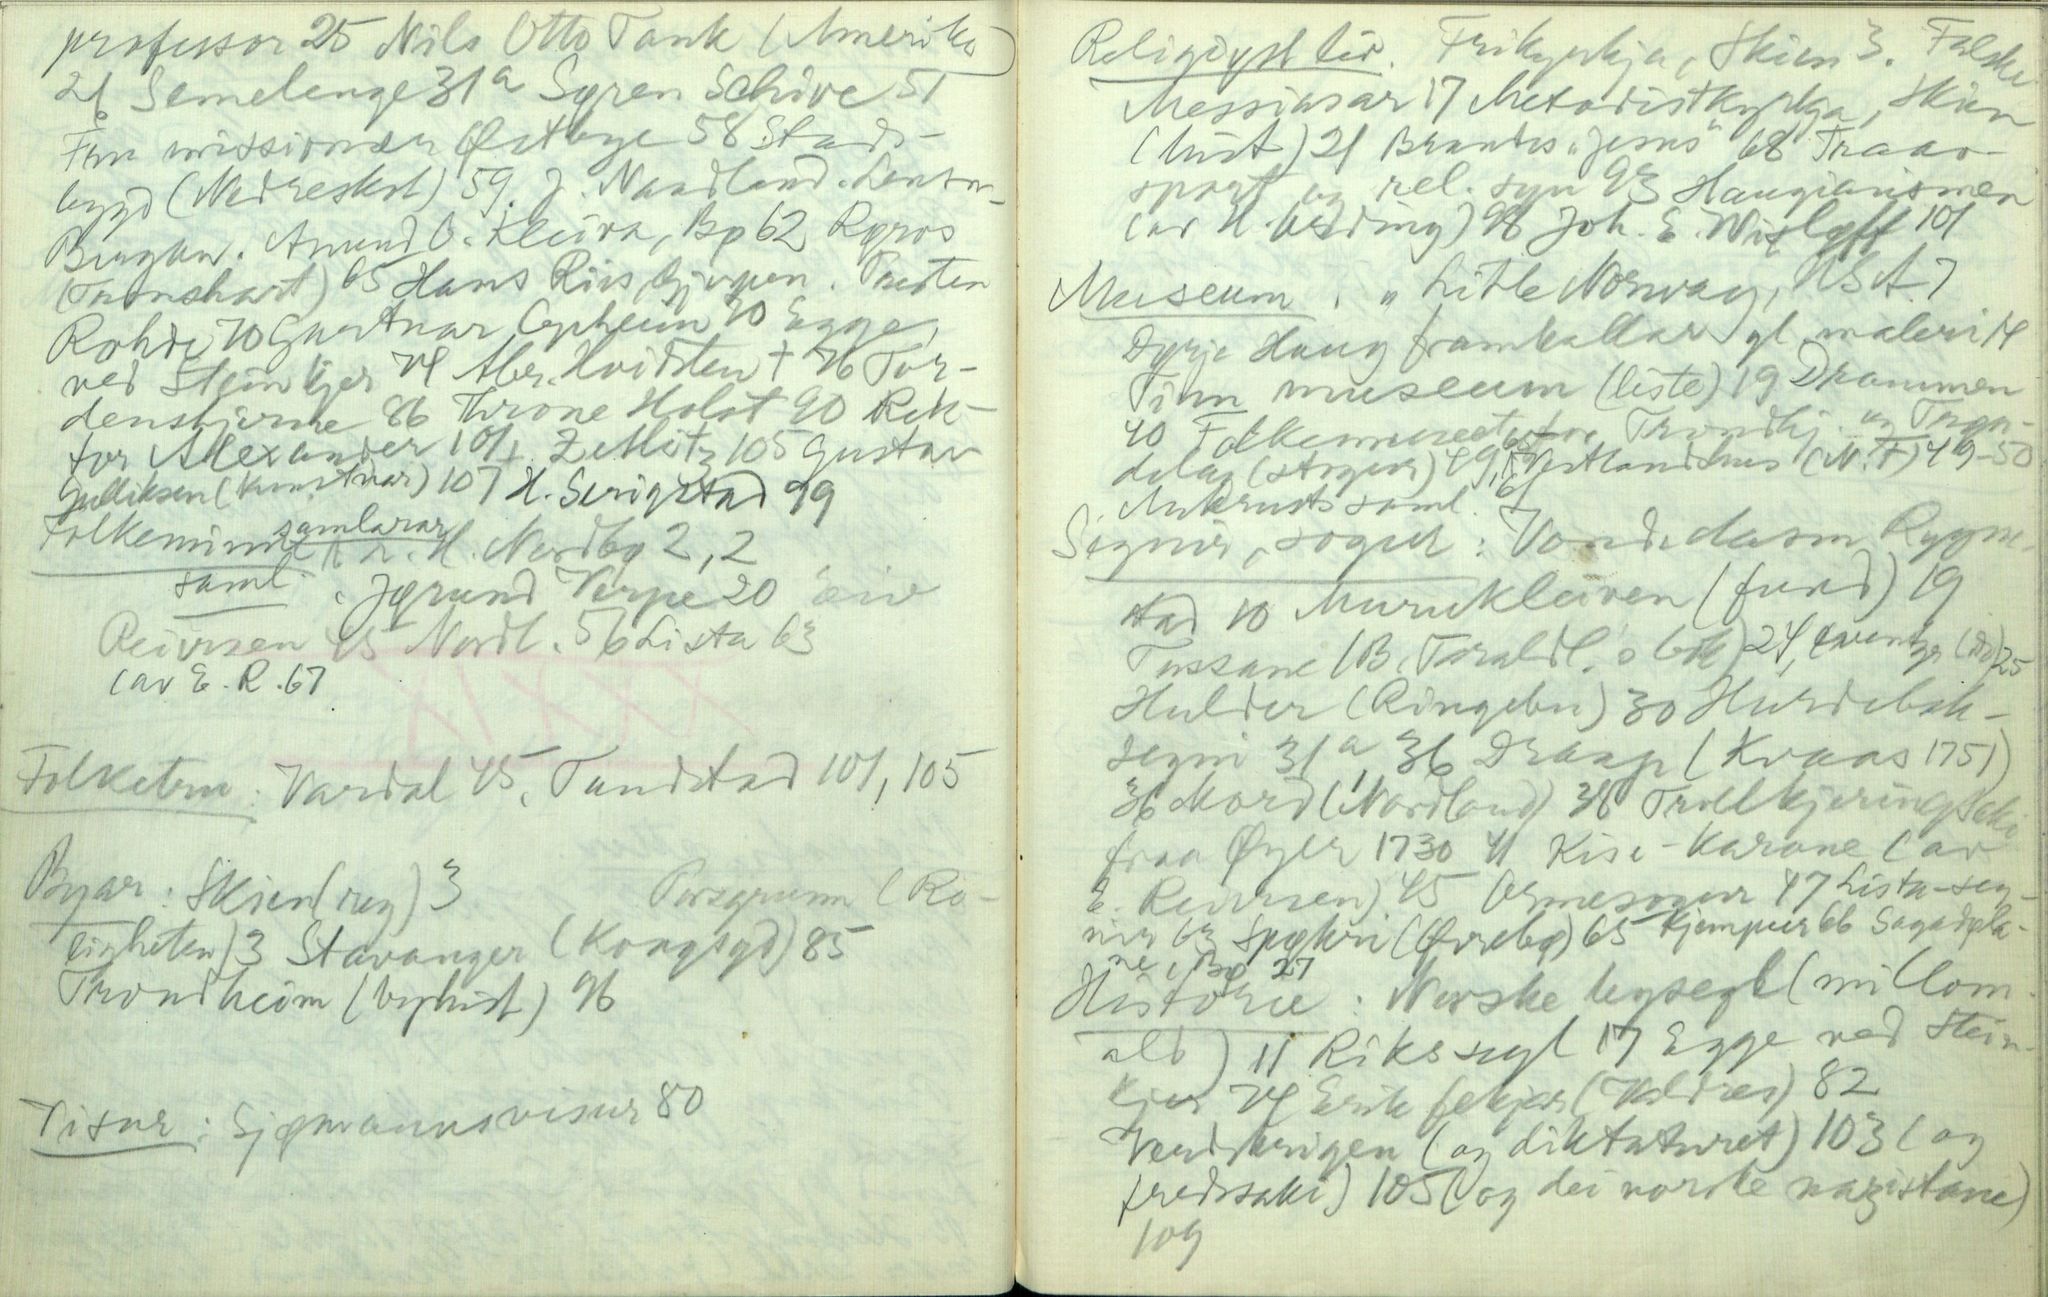 professor 25 Nils Otto Tank (Amerika)
26 Semelenge 31a Søren Schive 51
Fru missionær Østbye 58 Stads-
bygd (Nedreskot) 59. J. Nandland.
Bergen. Amund O. Kleiva, Bø 62 Røros
65 Hans Riis, Gjerpen. Presten
Rohde 70 Gartnar Opheim 70 Egge,
ved Steinkjer 74 Abr. Hvidsten † 76 Tor-
denstjerne 86 Throne Holst 90 Rek-
tor Alexander 101, Z. Mitz 105 Gustav
Gulliksen (kunstnar) 107 H. Serigstad 99
Folkeminnesamlarar L. H. Nordbø 2, 2
saml. Jørund Verpe 20 eiv
Reiersen 45 Nordl. 56 Lista 63
(av E. R. 67
XXXIX
Folketru: Vardal 45, Tundstad 101, 105
Byar: Skien (reg) 3 Porsgrunn (Rö-
ligheten) 3 Stavanger (Kongsgd) 85
Trondheim (byhist) 96
Visur: Sjømannsvisur 80
Religiøst liv. Frikyrkja, Skien 3. Falske
Messiasar 17 Metodistkyrkja, Skien
(hist) 21 Brandes "Jesus" 68 Traas-
og rel. syn 93 Haugianismen
(av H. Ording) 98 Joh. E. Wisløff 101
Museum: "Little Norway, USA. 7
Dyrje Haug framkallar gl. maleri 14
Tinn museum (liste) 19 Drammen
40 Folkemuseet for Trondhj. og Trøn-
delag (stogur) 49, Vestlandshus (N. F) 49-50
saml. 61
Segnir, sogur: Rygne-
stad 10 Murukleiven (fund) 19
Tussane (B. Taraldl.s bok) 24, (do) 25
Hulder (Ringebu) 30 Hurdebak-
segni 31a 36 Draap (Kraas 1751)
36 Mord (Nordland) 38 Trollkjeringsoki
fraa Øyer 1730 41 Kise-Karane (av
E. Reiersen) 45 Ormesogur 47 Lista-seg-
nir 63 Spøkri (Ørebø) 65 Kjempur 66 Sagadøla-
ne, Bø 27
Historie: Norske bysegl (millom-
ald) 11 Rikssegl 17 Egge ved Stein-
kjer 74 Erik fekjar (Valdres) 82
Verdskrigen (og diktaturet) 103 (og
fredssaki) 105 (og dei norske nazistane)
109